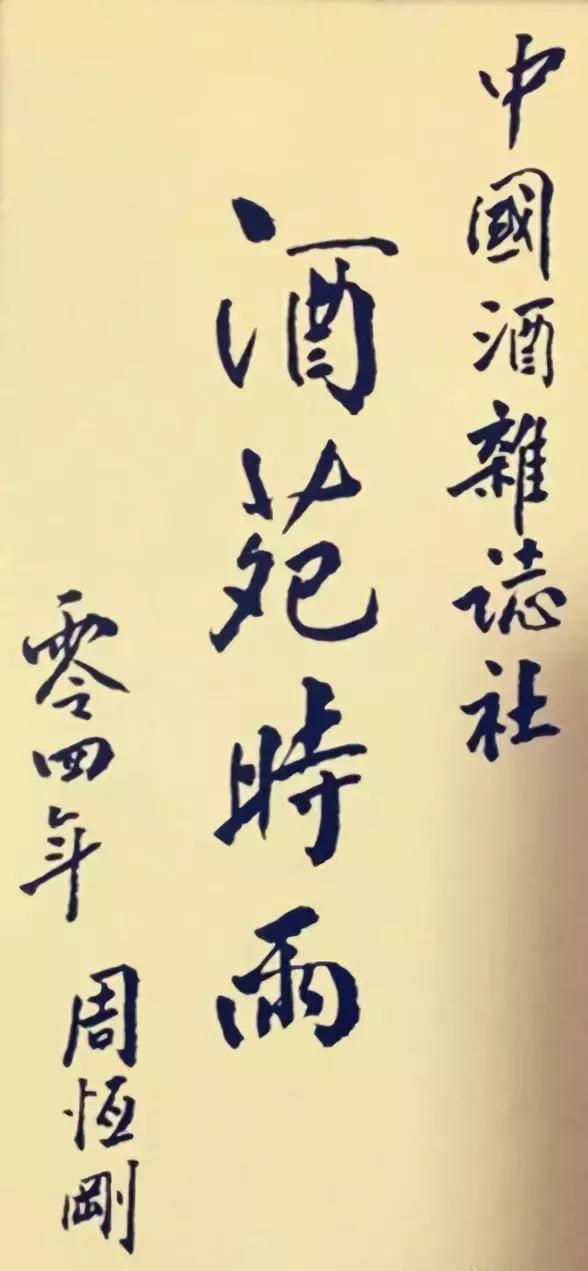 中國酒雜誌社
酒苑時雨
零四年
周恆剛